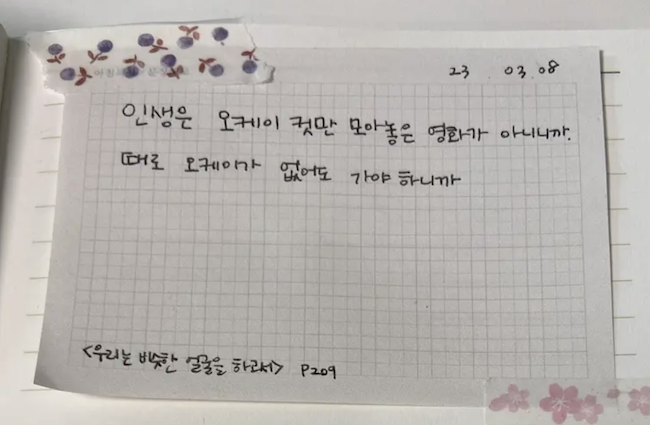 23 03.08
인생은 오케이 컷만 모아놓은 영화가 아니니까.
때로 오케이가 없어도 가야 하니까
<우리는 비슷한 얼굴을 하고서> P209